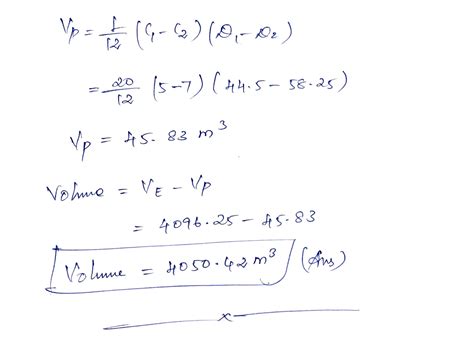 Vp = 1/12 (C1 - C2) (D1 - D2)
= 20/12 (5-7) (44.5 - 58.25)
Vp = 45.83 m³
Volume = VE - Vp
= 4096.25 - 45.83
Volume = 4050.42 m³ (Ans)
x